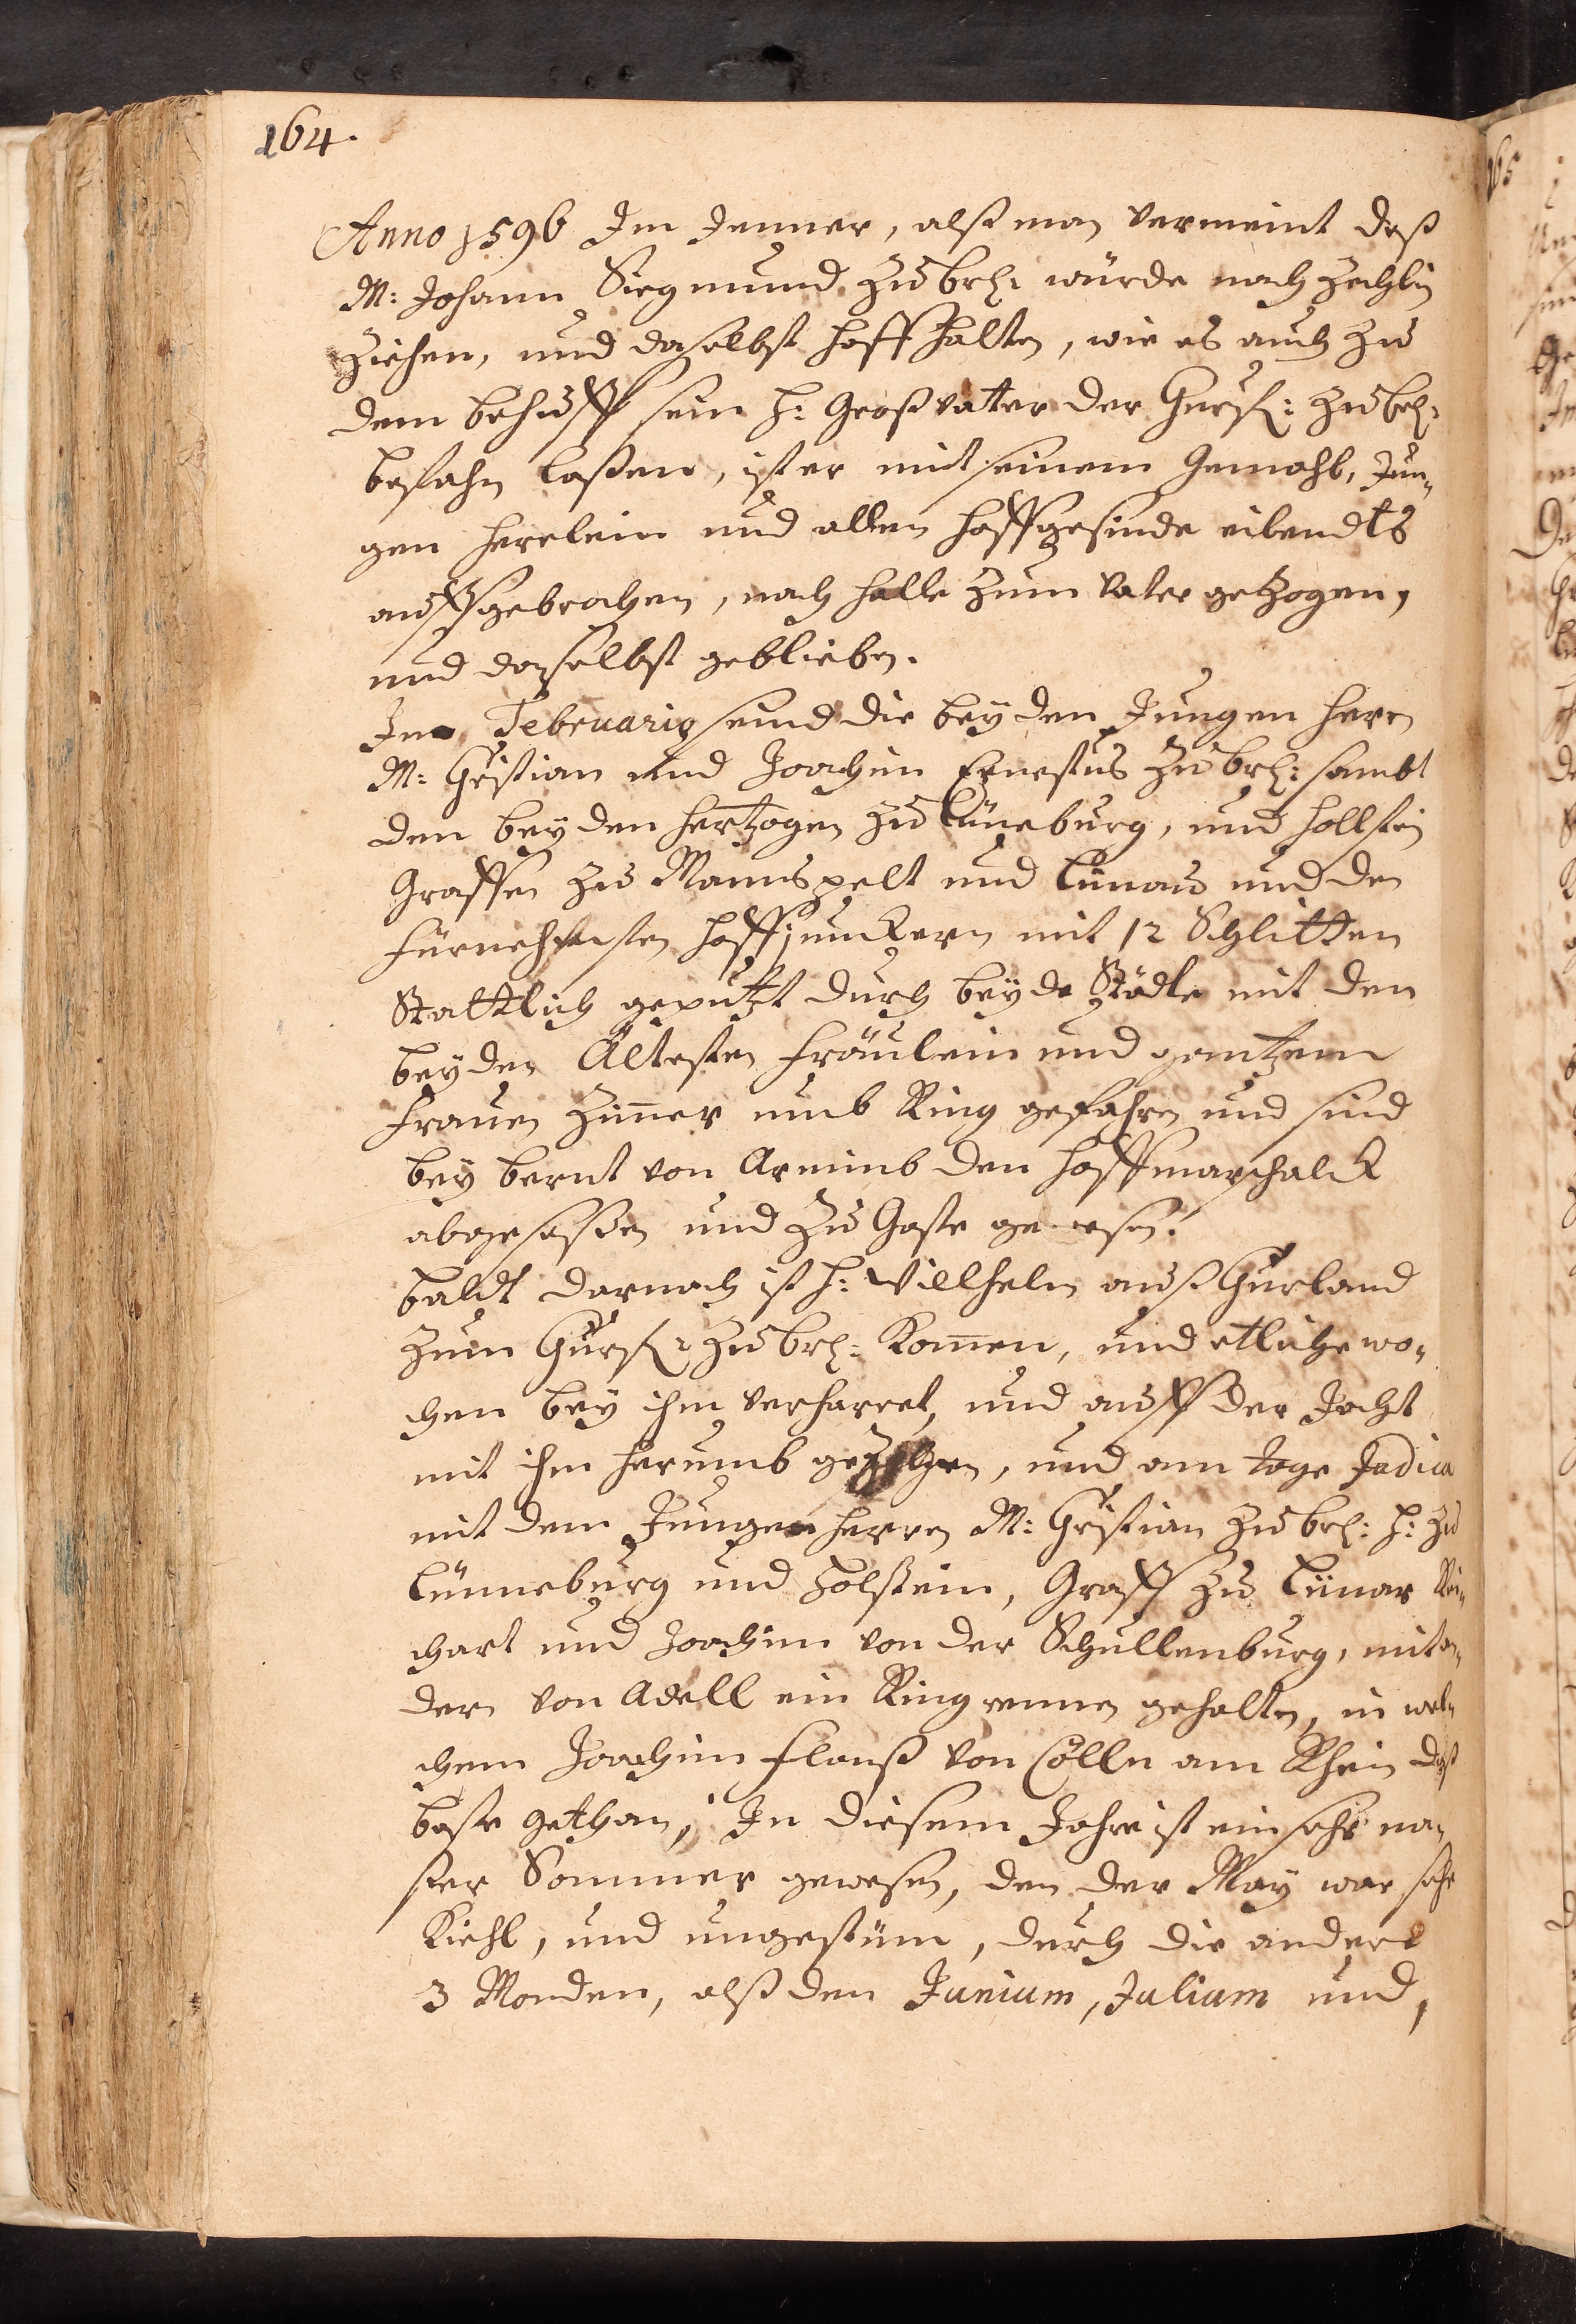 164.
Anno 1596 Im Jenner, alß man vermeint daß
M: Johann Siegmund zu brl: würde nach Zechlin
ziehen, und daselbst hoff halten, wie es auch zu
dem behuff sein H: Großvatter der Churf: zu brl:
besahn laßen, ist er mit seinem Gemahl, Jun„
gen herrlein und allen hoffgesinde eilendts
auffgebrochen, nach Halle zum Vater getzogen,
und daselbst geblieben.
Im Februario seind die beyden Jungen Herrn
M: Christian und Joachim Ernestus zu brl: sambt
den beyden Hertzogen zu Lüneburg, und Hollstein
Graffen zu Mannspelt und Lünau und den
fürnehmsten hoffjunckern mit 12 Schlitten
Stattlich geputzt durch beyde Städte mit den
beyden Ältesten Fräulein und gantzem
Frauen Zimer umb Ring gefahren und sind
bey bernt von Arnimb den hoffmarschalck
abgesessen und zu Gaste gewesen.
baldt darnach ist H: Willhelm auß Churland
zum Churf: zu brl: Komen, und etliche wo„
chen bey ihm verharret, und auff der Jacht
mit ihm herumb gezogen, und am tage Judica
mit dem Jungen Herren M: Christian zu brl: H: zu
Lünneburg und Holstein, Graff zu Lünar Rei„
chart und Joachim von der Schullenburg, mit an„
dern von Adell ein Ring rennen gehalten, in wel„
chem Joachim Flanß von Cölln am Rhein daß
beste gethan, In diesem Jahre ist ein sehr na„
ßer Sommer gewesen, den der May war sehr
Kiehl, und ungestüm, durch die andere
3 Monden, alß den Junium, Julium und,